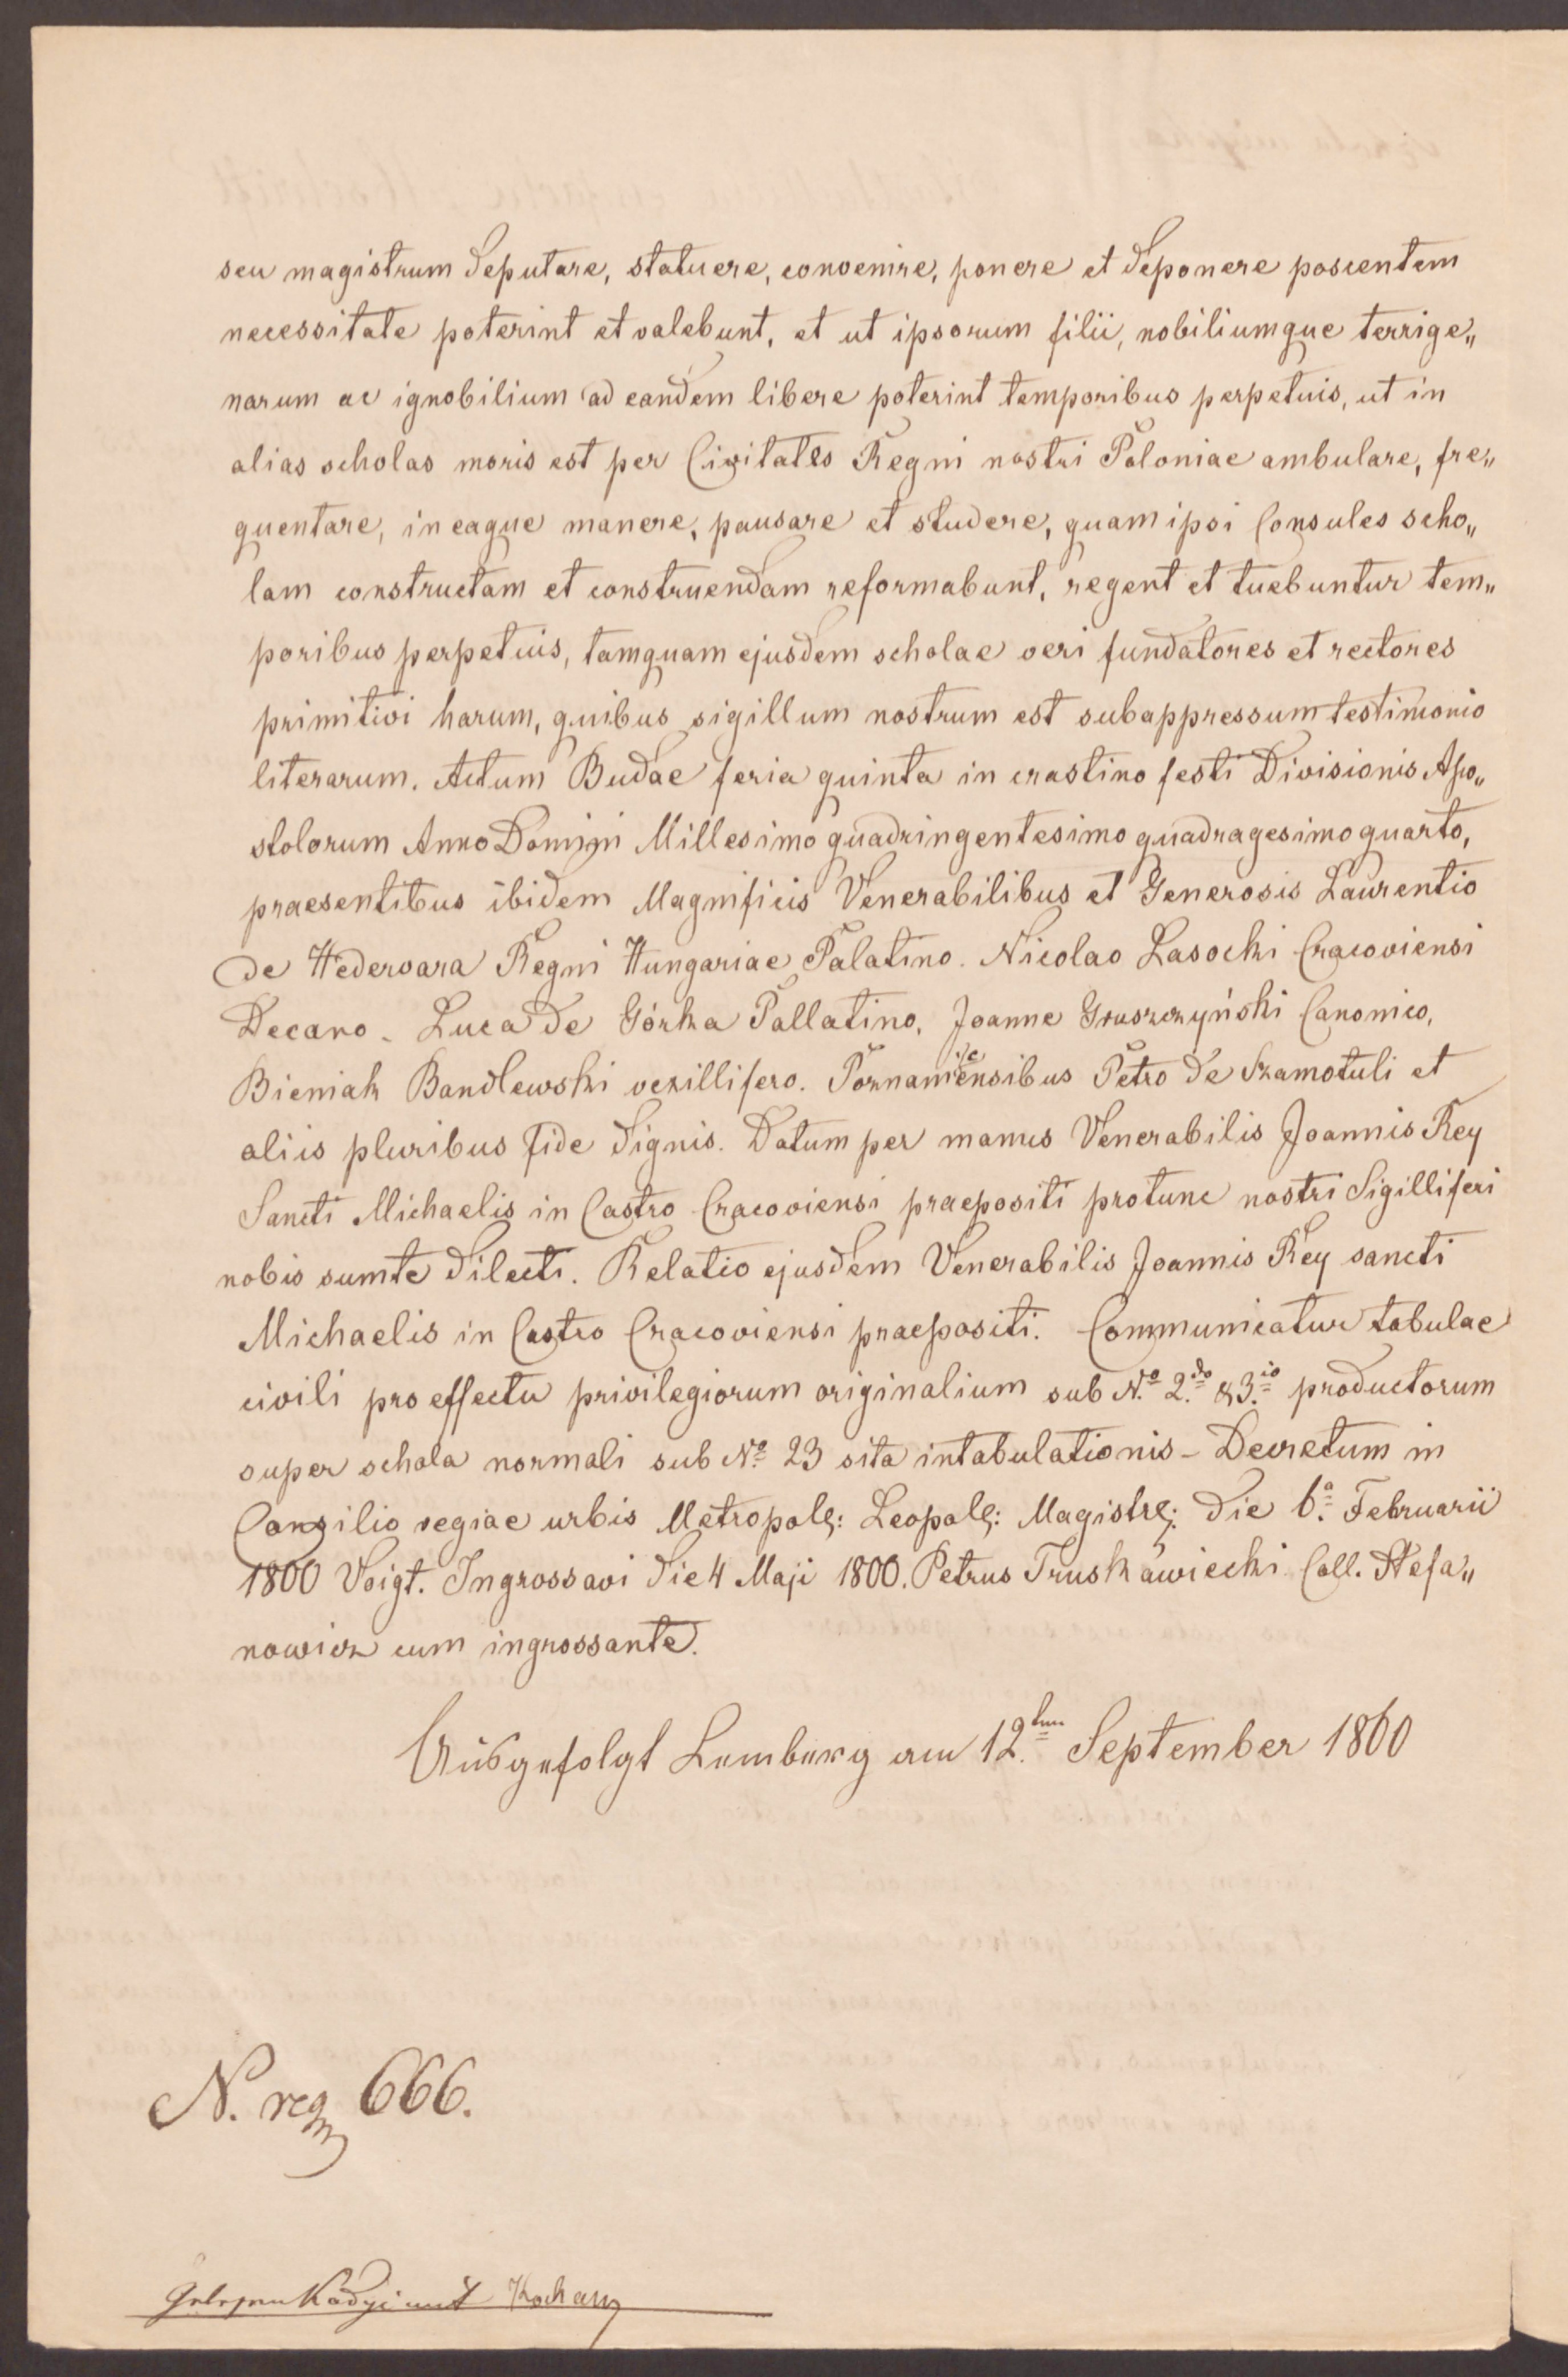 seu magistrum deputare, statuere, convenire, ponere et deponere poscentem
necessitate poterint et valebunt, et ut ipsorum filii, nobiliumque terrige„
narum ac ignobilium ad eandem libere poterint temporibus perpetuis, ut in
alias scholas moris est per Civitates Regni nostri Poloniae ambulare, fre„
quentare, in eaque manere, pausare et studere, quam ipsi Consules scho„
lam constructam et construendam reformabunt, regent et tuebuntur tem„
poribus perpetuis, tamquam ejusdem scholae veri fundatores et rectores
primitivi harum, quibus sigillum nostrum est subappressum testimonio
literarum. Actum Budae feria quinta in crastino festi Divisionis Apo„
stolorum Anno Domini Millesimo quadringentesimo quadragesimo quarto,
praesentibus ibidem Magnificis Venerabilibus et Generosis Laurentio
de Hedervara Regni Hungariae Palatino. Nicolao Lasocki Cracoviensi
Decano. Luca de Górka Pallatino, Joanne Gruszczyński Canonico,
Bieniak Bandlewski vexillifero. Poznaniensibus Petro de Szamotuli et
aliis pluribus fide dignis. Datum per manus Venerabilis Joannis Rey
Sancti Michaelis in Castro Cracoviensi praepositi protunc nostri Sigilliferi
nobis sumte dilecti. Relatio ejusdem Venerabilis Joannis Rey sancti
Michaelis in Castro Cracoviensi praepositi. Communicatur tabulae
civili pro effectu privilegiorum originalium sub N.º 2.do & 3.io productorum
super schola normali sub Nº 23 sita intabulationis - Decretum in
Consilio regiae urbis Metropol: Leopol: Magistr: die 6.a Februarii
1800 Voigt. Ingrossavi die 4 Maji 1800. Petrus Truskawiecki Coll. Stefa„
nowicz cum ingrossante.
Ausgefolgt Lemberg am 12.ten September 1860
N. reg 666.
Gelesen Kadyi mit Kochan